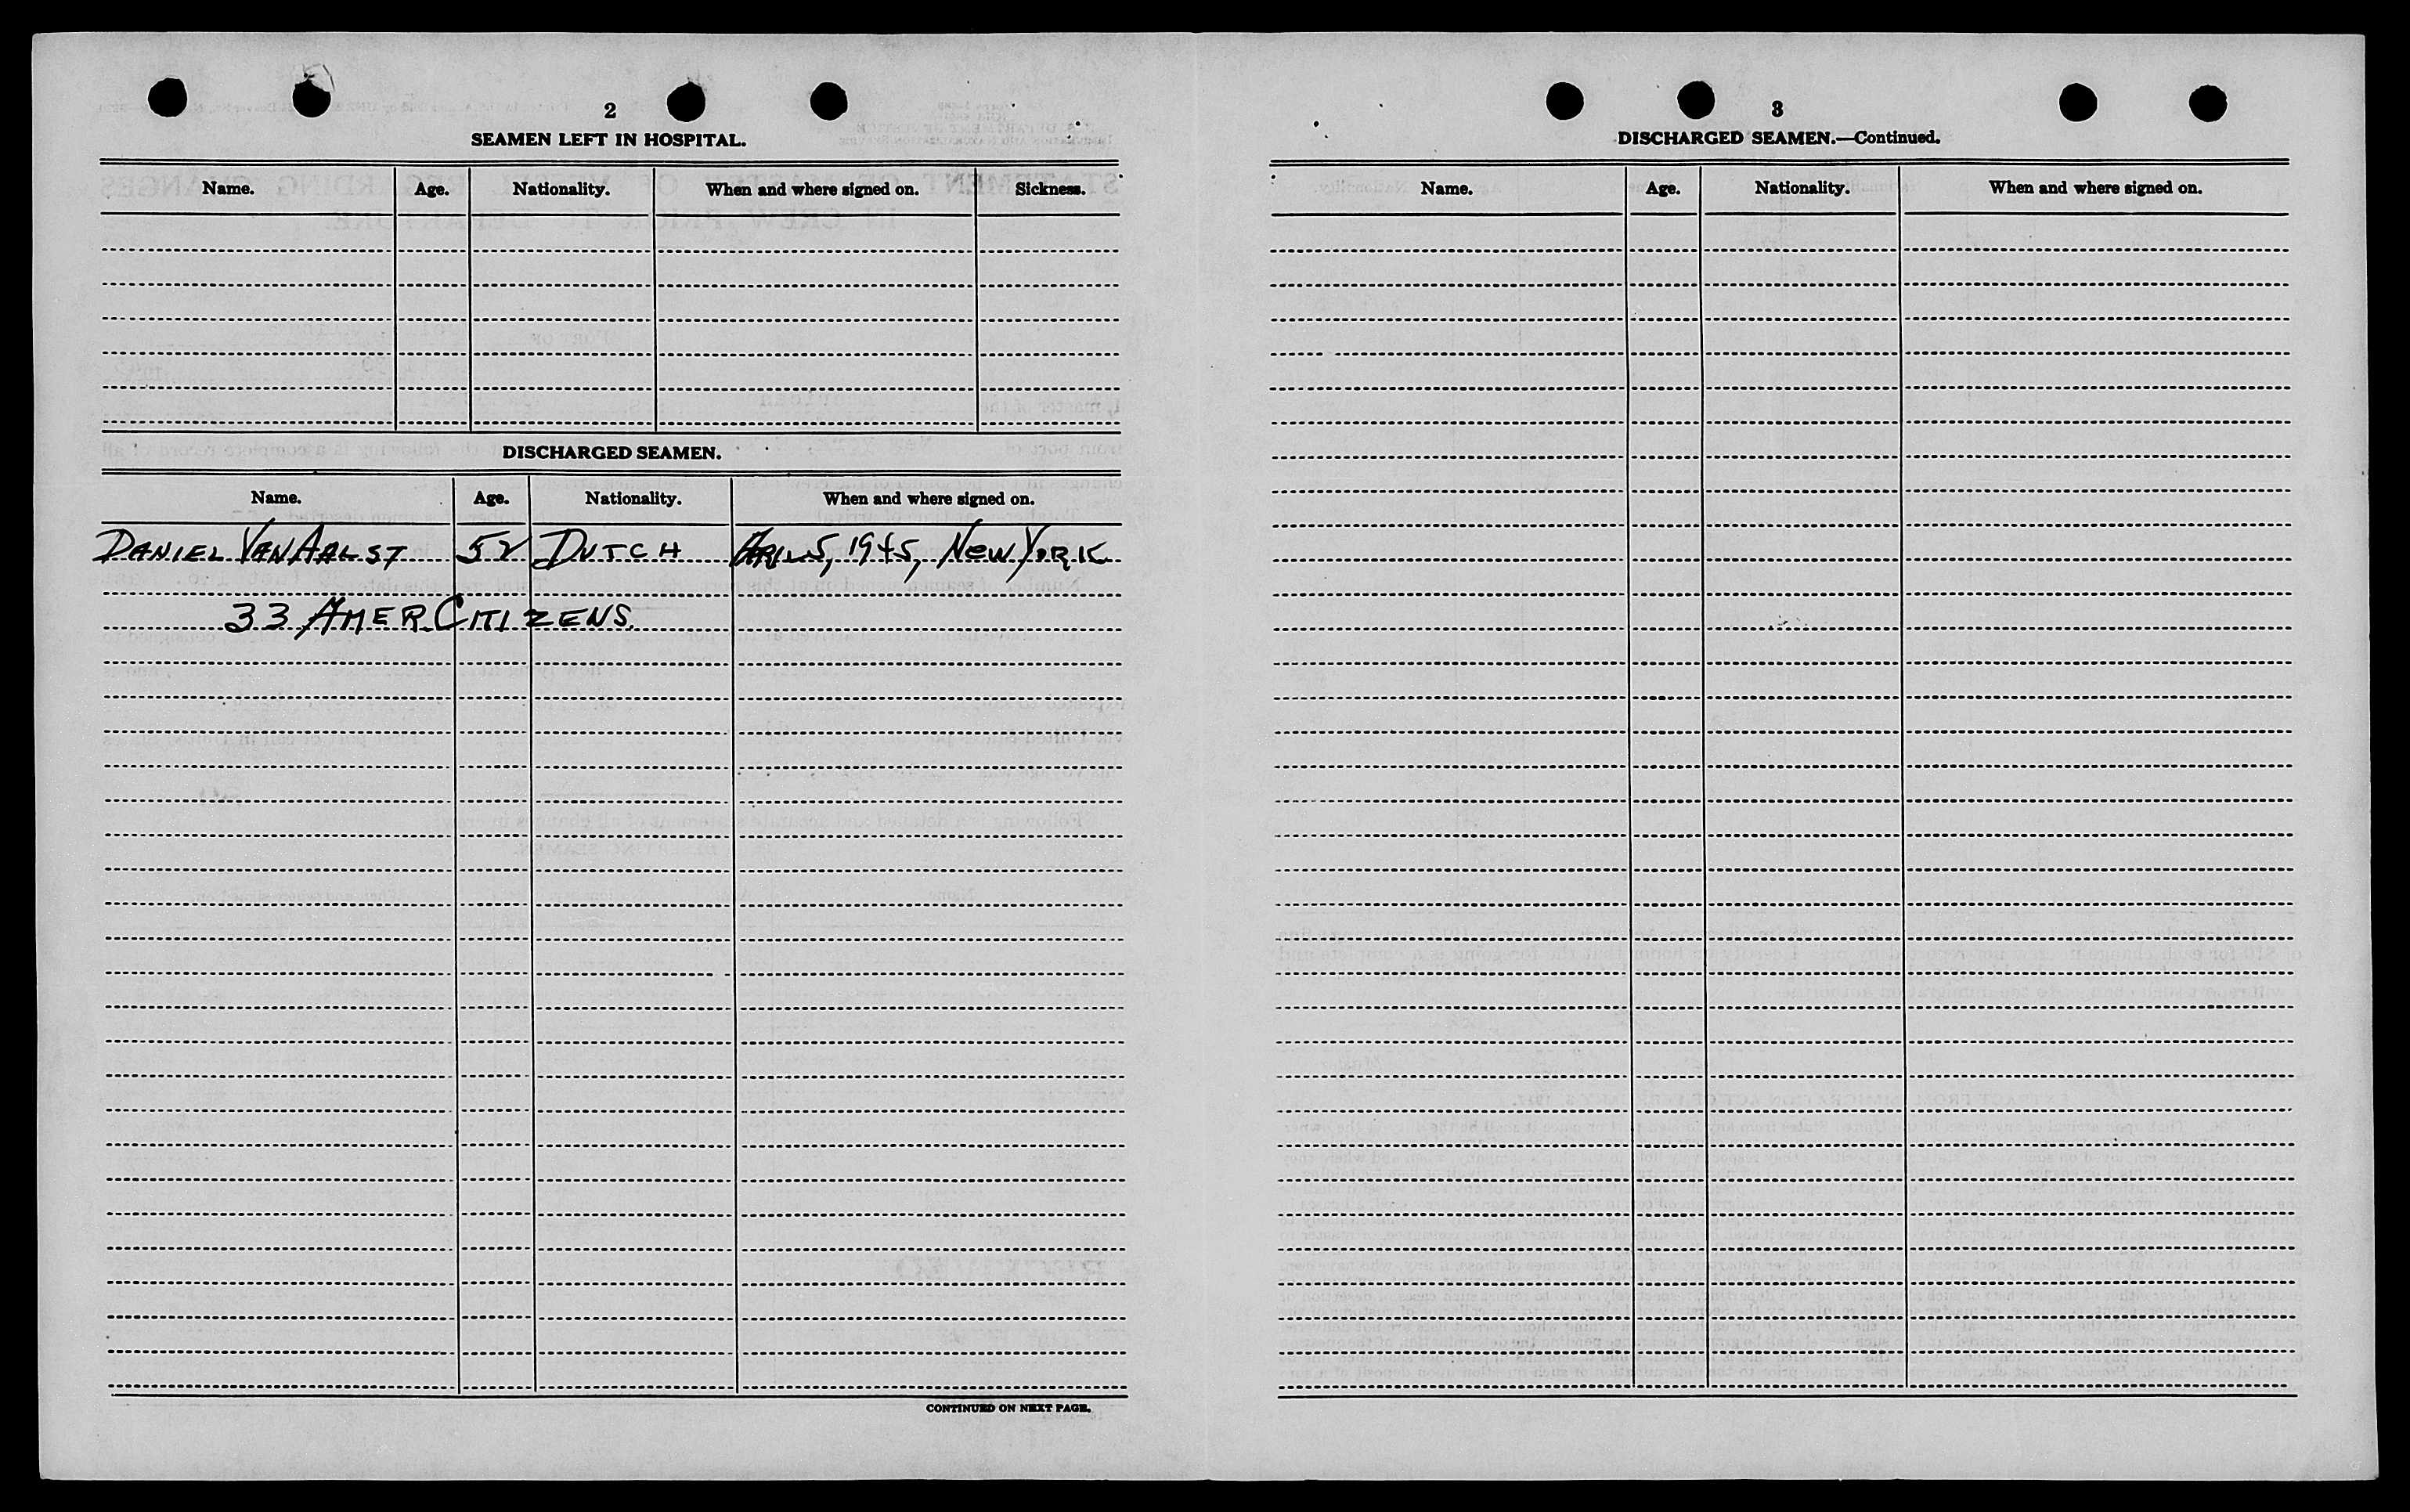 2
SEAMEN LEFT IN HOSPITAL.
Name. Age. Nationality. When and where signed on. Sickness.
DISCHARGED SEAMEN.
Name. Age. Nationality. When and where signed on.
DANIEL VAN AALST 52 DUTCH APRIL 5, 1945, NEW YORK
33 AMER CITIZENS.
CONTINUED ON NEXT PAGE.
3
DISCHARGED SEAMEN.—Continued.
Name. Age. Nationality. When and where signed on.